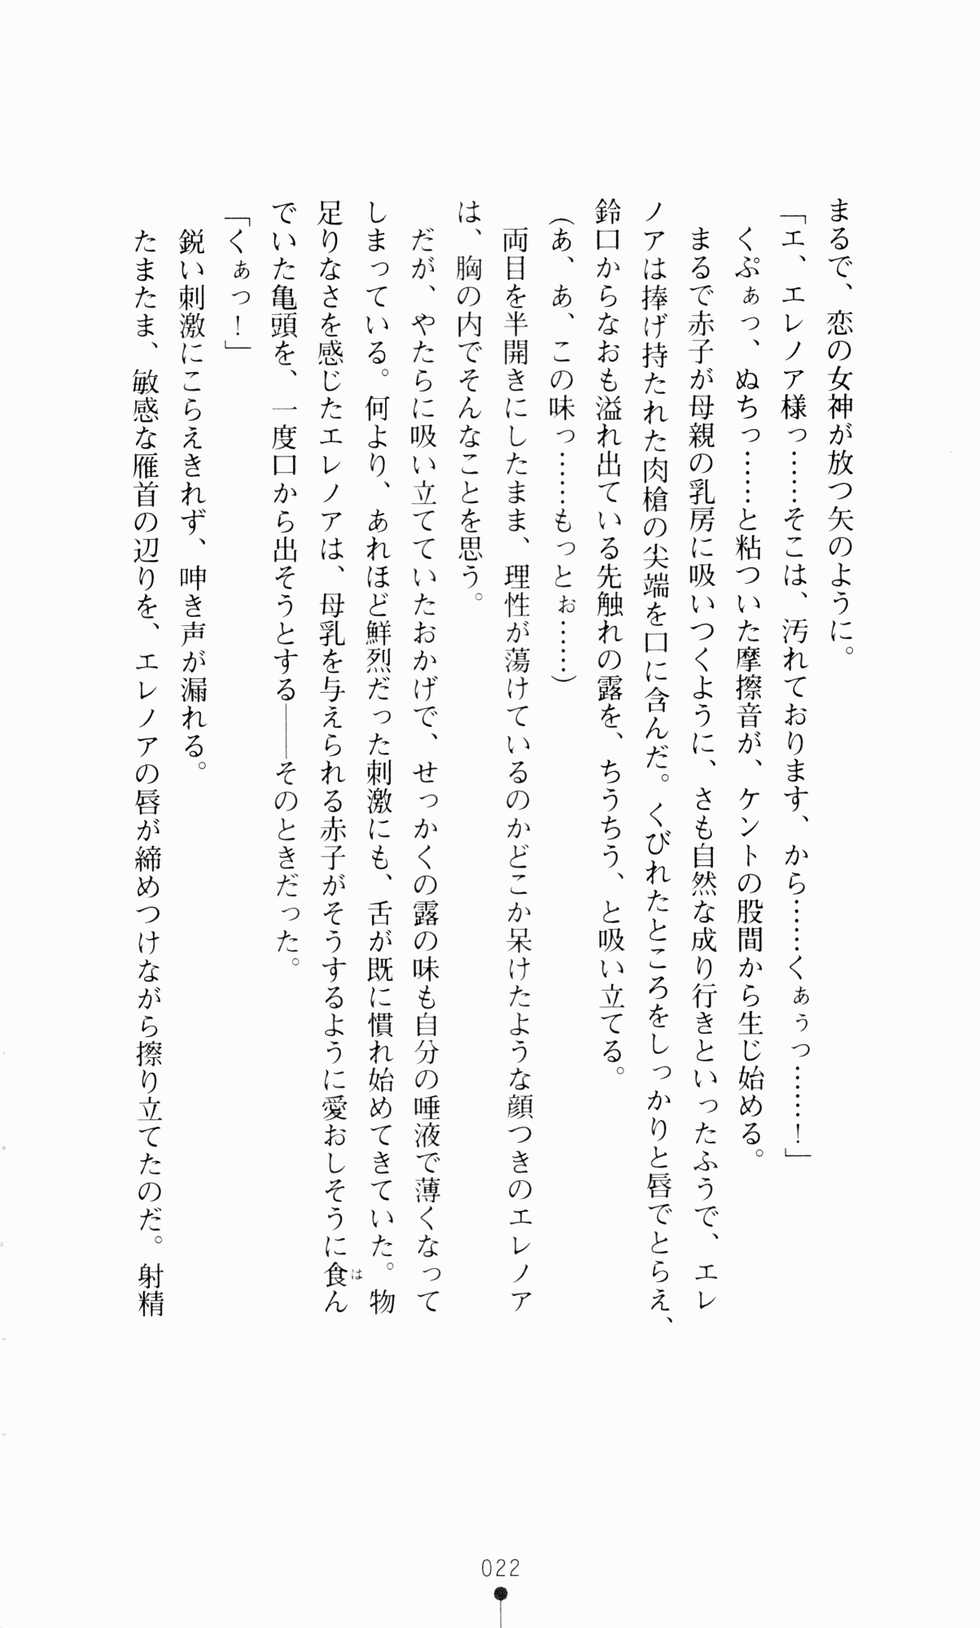 まるで、恋の女神が放つ矢のように。
「エ、エレノア様っ……そこは、汚れております、から……くぁぅっ……！」
くぷぁっ、ぬちっ……と粘ついた摩擦音が、ケントの股間から生じ始める。
まるで赤子が母親の乳房に吸いつくように、さも自然な成り行きといったふうで、エレ
ノアは捧げ持たれた肉槍の尖端を口に含んだ。くびれたところをしっかりと唇でとらえ、
鈴口からなおも溢れ出ている先触れの露を、ちうちう、と吸い立てる。
（あ、あ、この味っ……もっとぉ……）
両目を半開きにしたまま、理性が蕩けているのかどこか呆けたような顔つきのエレノア
は、胸の内でそんなことを思う。
だが、やたらに吸い立てていたおかげで、せっかくの露の味も自分の唾液で薄くなって
しまっている。何より、あれほど鮮烈だった刺激にも、舌が既に慣れ始めてきていた。物
足りなさを感じたエレノアは、母乳を与えられる赤子がそうするように愛おしそうに食は
んでいた亀頭を、一度口から出そうとする――そのときだった。
「くぁっ！」
鋭い刺激にこらえきれず、呻き声が漏れる。
たまたま、敏感な雁首の辺りを、エレノアの唇が締めつけながら擦り立てたのだ。射精
022